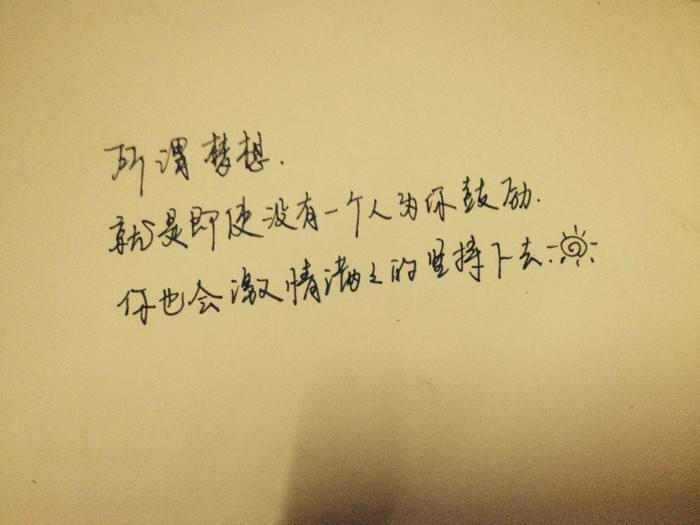 所谓梦想.
就是即使没有一个人为你鼓励.
你也会激情满々的坚持下去.